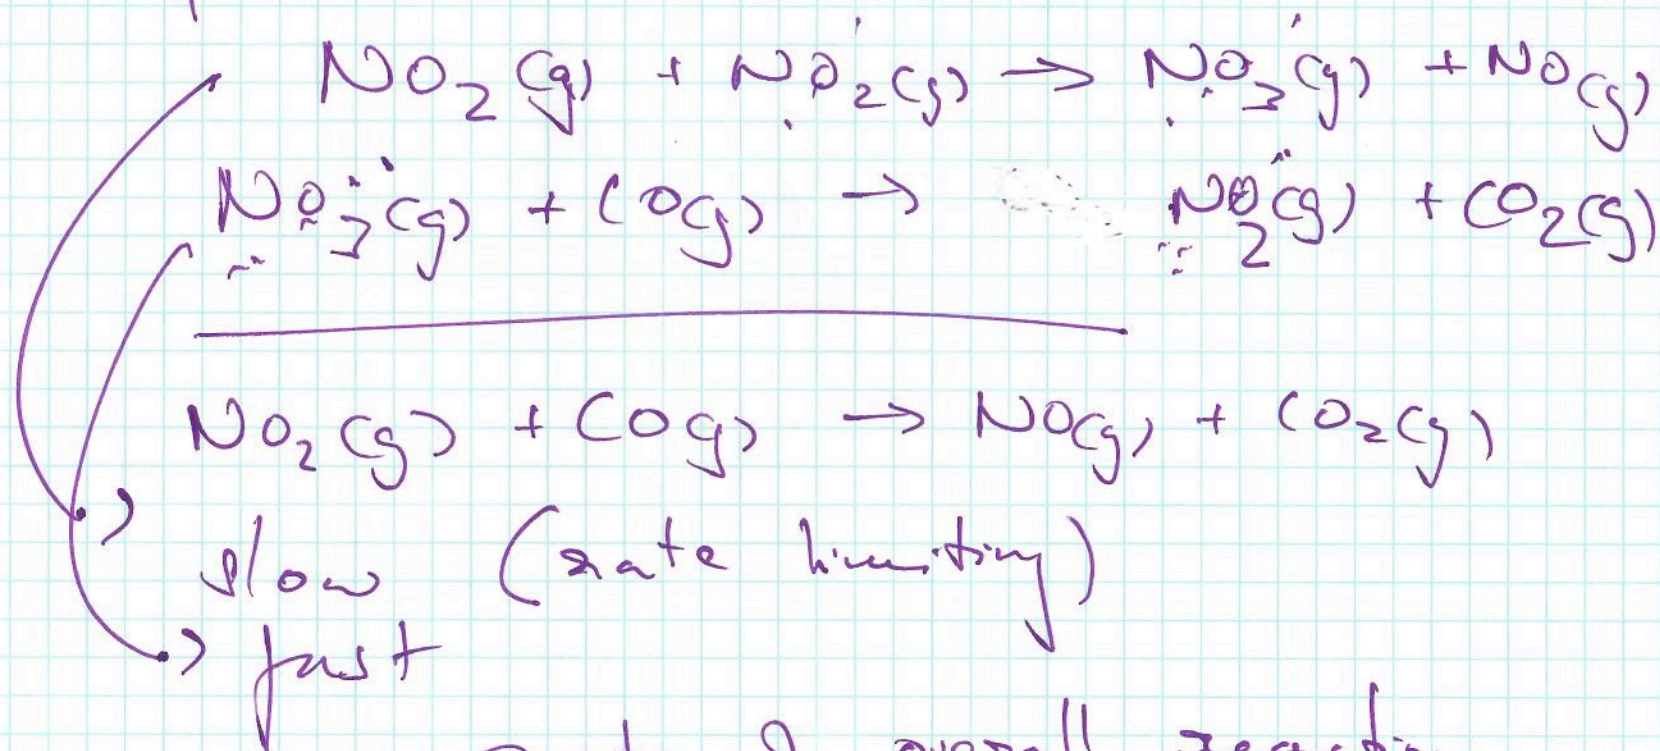 NO₂(g) + NO₂(g) → NO₃(g) + NO(g)
NO₃(g) + CO(g) → NO₂(g) + CO₂(g)
NO₂(g) + CO(g) → NO(g) + CO₂(g)
slow (rate limiting)
fast
overall reaction